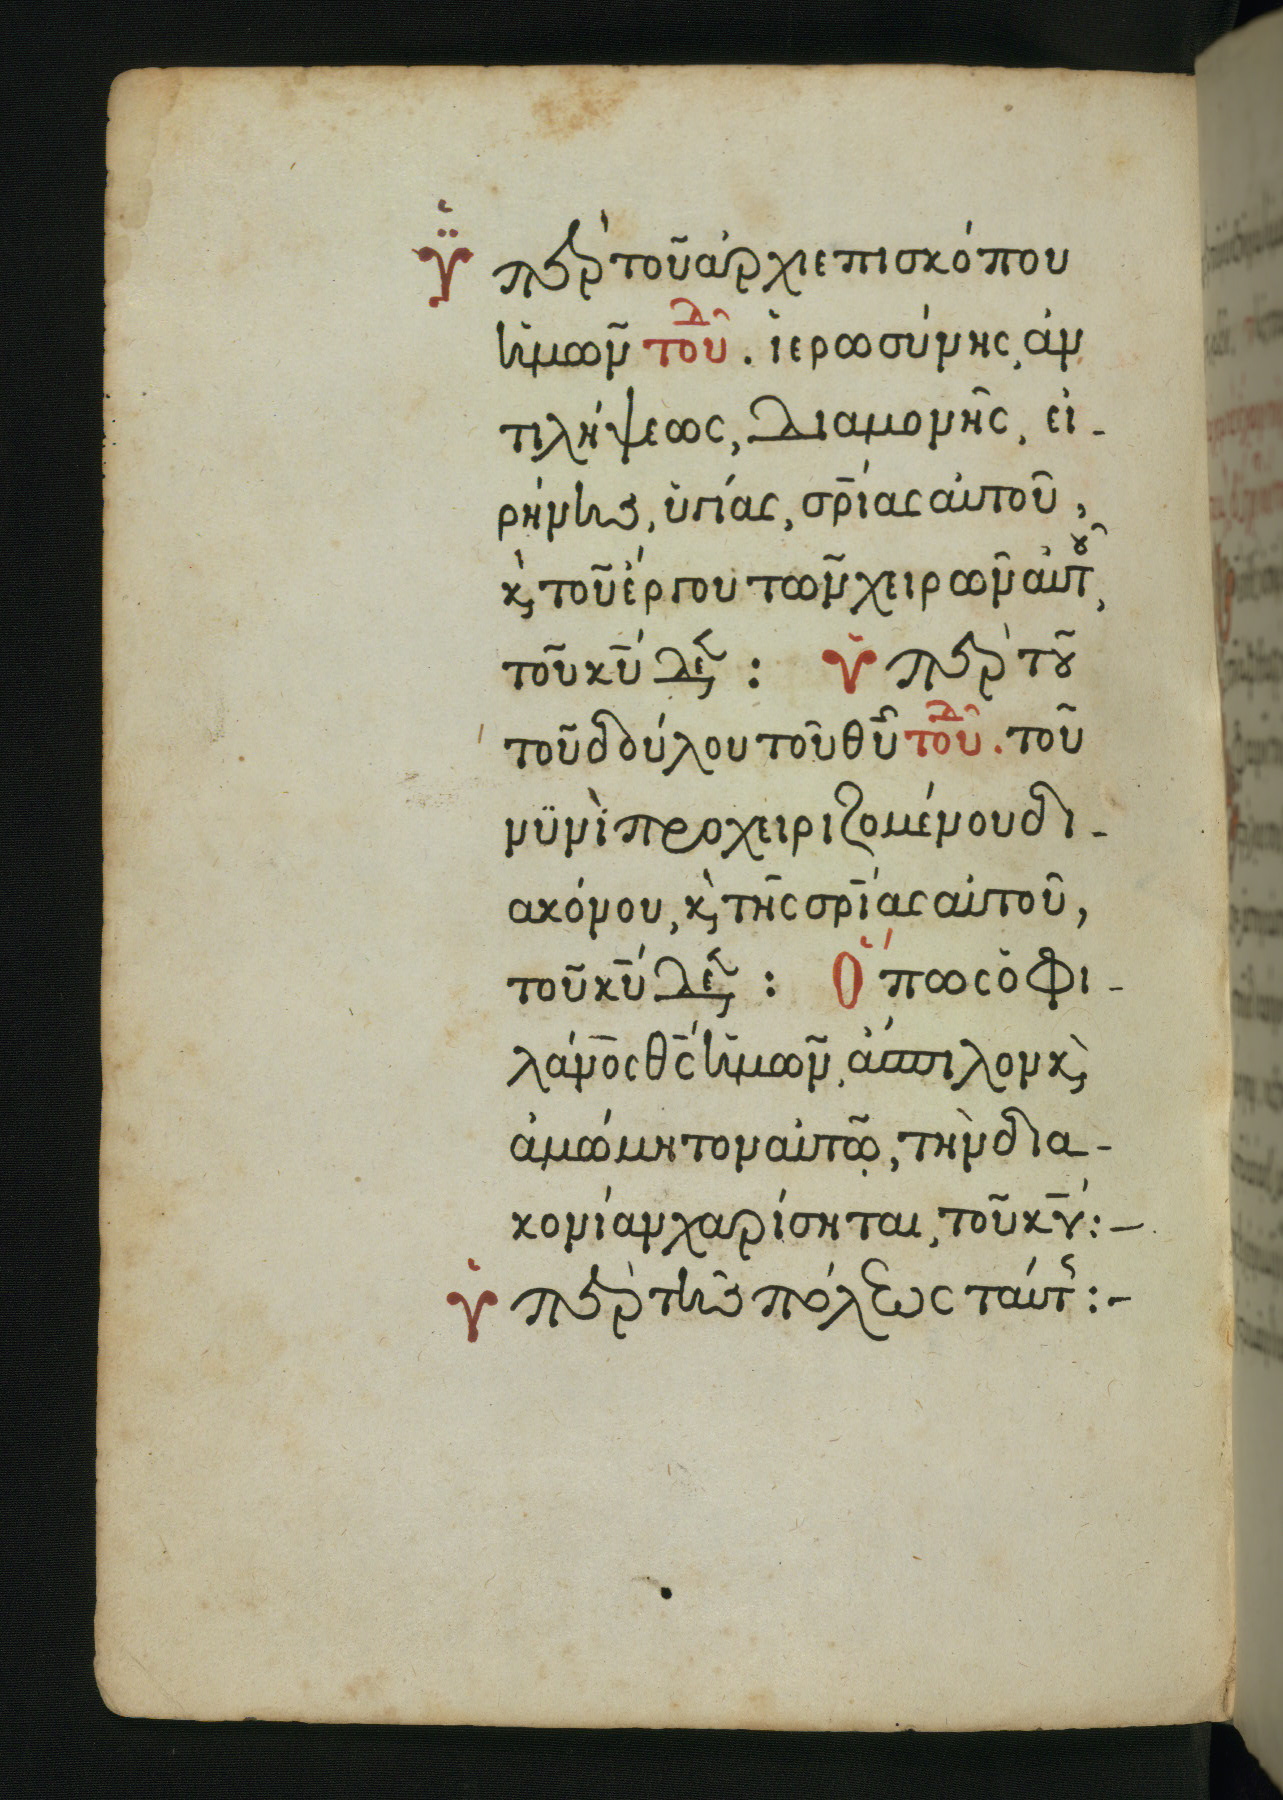 Ὑπὲρ τοῦ ἀρχιεπισκόπου
ἡμῶν τοῦδ̑. ἱερωσύνης, ἀν
τιλήψεως, διαμονῆς, εἰ-
ρήνης, ὑγίας, σρ̅ίας αὐτοῦ,
κ̀ τοῦ ἔργου τῶν χειρῶν αὐτοῦ,
τοῦ κ̅υ δεη: ὑπὲρ τοῦ
τοῦ δούλου τοῦ θ̅υ τοῦδ̑. τοῦ
νυνὶ προχειριζομένου δι-
ακόνου, κ̀ τῆς σρ̅ίας αὐτοῦ,
τοῦ κ̅υ δεη: Ὅπως ὁ φι-
λάν̅ος θ̅ς ἡμῶν, ἄσπιλον κ̀
ἀμώμητον αὐτῷ, τὴν δια-
κονίαν χαρίσηται, τοῦ κ̅υ:-
ὑπὲρ τῆς πόλεως ταύτ:-